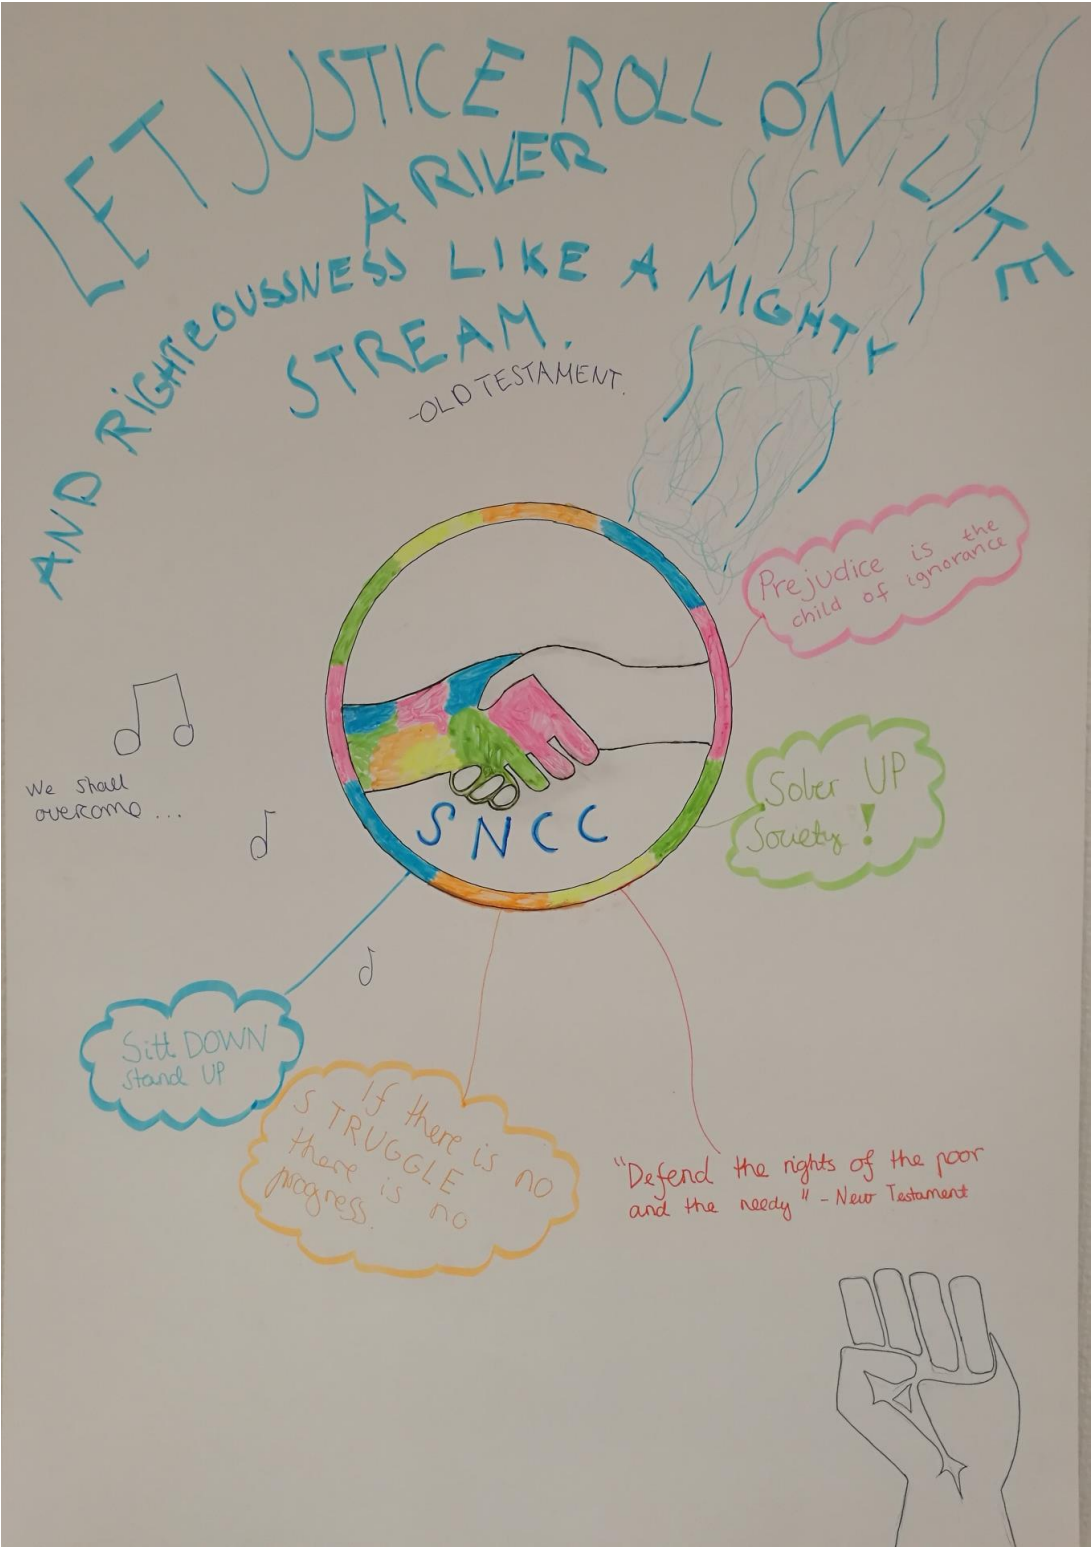 LET JUSTICE ROLL ON LIKE
A RIVER
AND RIGHTEOUSSNESS LIKE A MIGHTY
STREAM.
-OLD TESTAMENT.
Prejudice is the
child of ignorance
Sober UP
Society!
We shall
overcome...
SNCC
Sitt DOWN
Stand UP
If there is no
STRUGGLE
there is no
progress.
"Defend the rights of the poor
and the needy" - New Testament